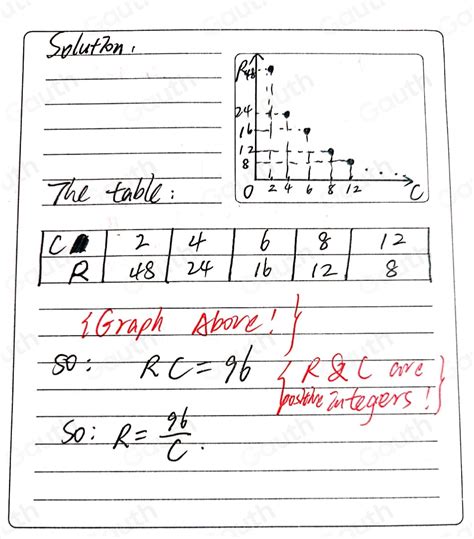 Solution.
R
48
24
16
12
8
0 2 4 6 8 12 C
The table:
C 2 4 6 8 12
R 48 24 16 12 8
{Graph Above!}
so: RC=96 {R & C are
positive integers!}
So: R= 96/C.